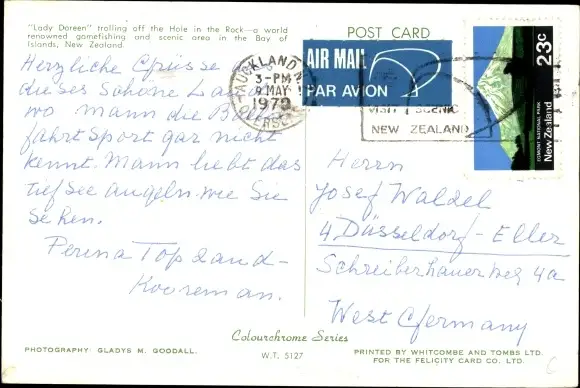 "Lady Doreen" trolling off the Hole in the Rock—a world
renowned gamefishing and scenic area in the Bay of
Islands, New Zealand.
POST CARD
Herzliche Grüsse
dieses Schöne La
wo mann die B
fahrt Sport gar nicht
kennt. Mann liebt das
tiefsee angeln. wie Sie
sehen.
Perina Topland-
Kooreman.
AUCKLAND N
3-PM
9 MAY
1979
AIR MAIL
PAR AVION
VISIT SCENIC
NEW ZEALAND
23c
New Zealand
EGMONT NATIONAL PARK
Herrn
Josef Waldel
4 Düsseldorf-Eller
Schreiberhauerweg 4a
West Germany
Colourchrome Series
W.T. 5127
PHOTOGRAPHY: GLADYS M. GOODALL.
PRINTED BY WHITCOMBE AND TOMBS LTD.
FOR THE FELICITY CARD CO. LTD.